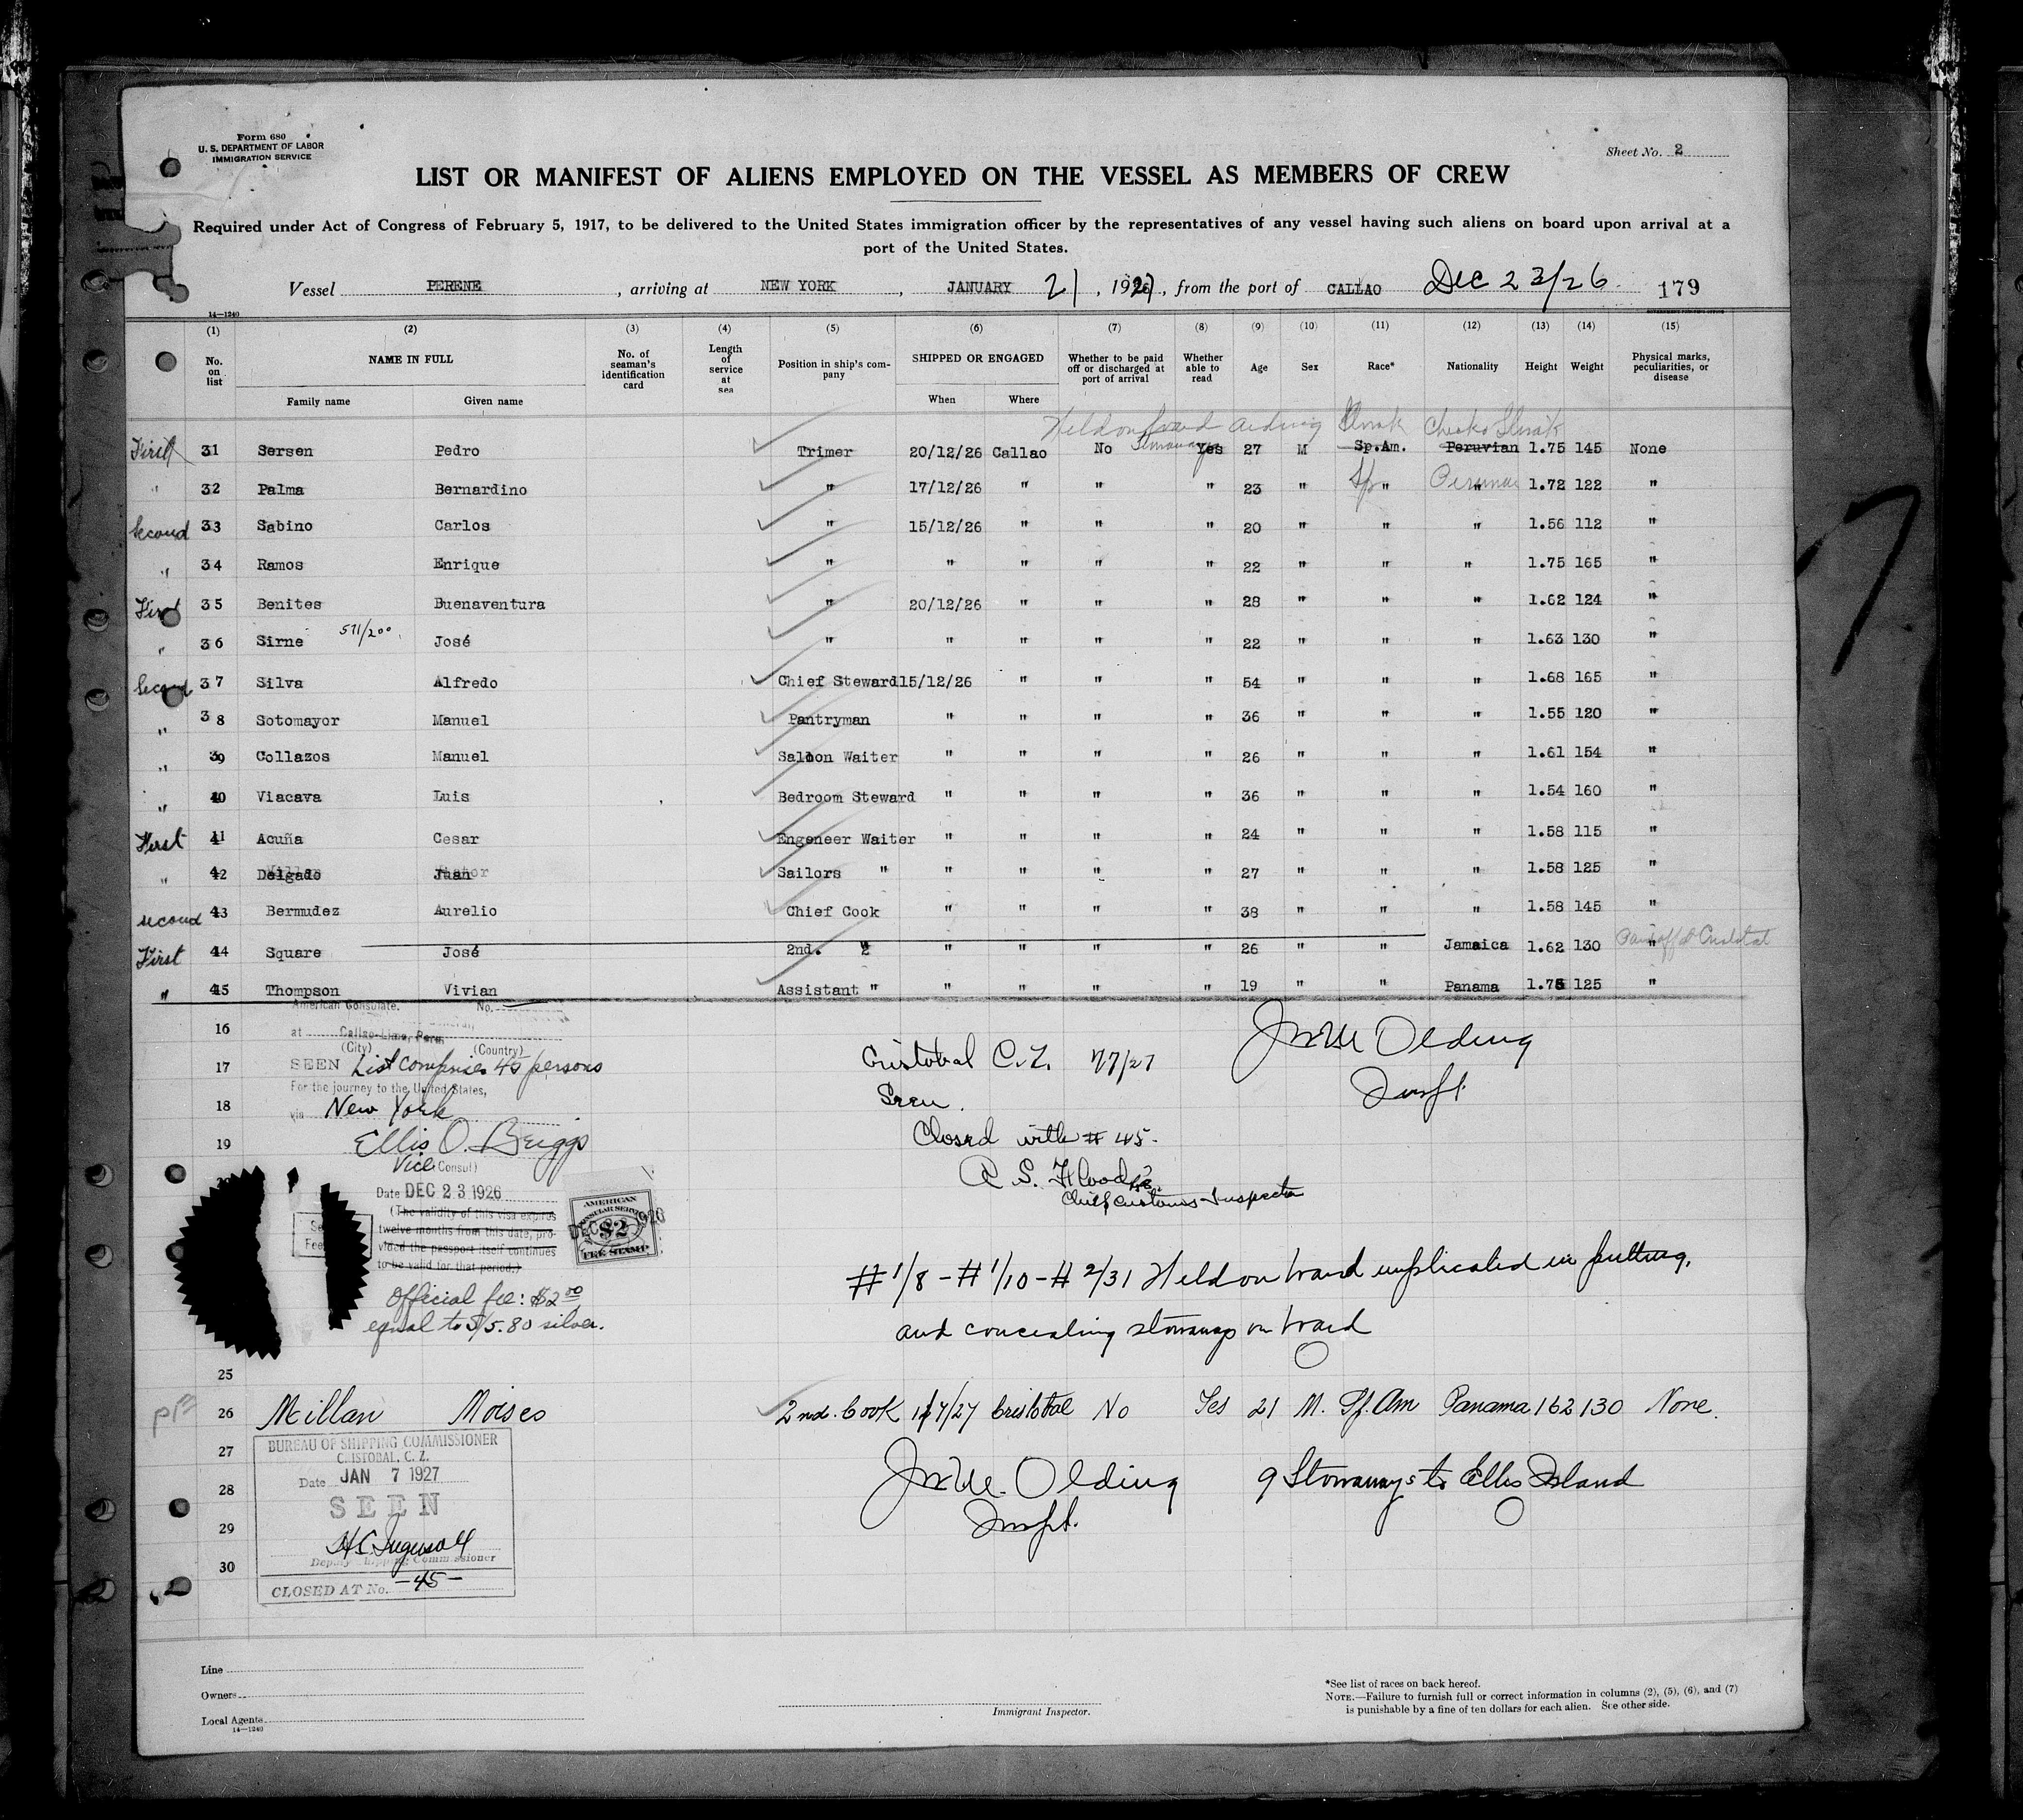 Form 680
U. S. DEPARTMENT OF LABOR
IMMIGRATION SERVICE
Sheet No. 2
LIST OR MANIFEST OF ALIENS EMPLOYED ON THE VESSEL AS MEMBERS OF CREW
Required under Act of Congress of February 5, 1917, to be delivered to the United States immigration officer by the representatives of any vessel having such aliens on board upon arrival at a
port of the United States.
Vessel PERENE, arriving at NEW YORK, JANUARY 21, 1927, from the port of CALLAO Dec 23/26. 179
14—1240
(1) (2) (3) (4) (5) (6) (7) (8) (9) (10) (11) (12) (13) (14) (15)
No. on list NAME IN FULL No. of seaman's identification card Length of service at sea Position in ship's company SHIPPED OR ENGAGED Whether to be paid off or discharged at port of arrival Whether able to read Age Sex Race* Nationality Height Weight Physical marks, peculiarities, or disease
Family name Given name When Where
Held on board aiding Slovak Checko Slovak
First 31 Sersen Pedro Trimer 20/12/26 Callao No Stowaways Yes 27 M Sp.Am. Peruvian 1.75 145 None
" 32 Palma Bernardino " 17/12/26 " " " 23 " Sp " Peruvian " 1.72 122 "
Second 33 Sabino Carlos " 15/12/26 " " " 20 " " " 1.56 112 "
" 34 Ramos Enrique " " " " " 22 " " " 1.75 165 "
First 35 Benites Buenaventura " 20/12/26 " " " 28 " " " 1.62 124 "
" 36 Sirne 571/200 José " " " " " 22 " " " 1.63 130 "
Second 37 Silva Alfredo Chief Steward 15/12/26 " " " 54 " " " 1.68 165 "
" 38 Sotomayor Manuel Pantryman " " " " 36 " " " 1.55 120 "
" 39 Collazos Manuel Saloon Waiter " " " " 26 " " " 1.61 154 "
" 40 Viacava Luis Bedroom Steward " " " " 36 " " " 1.54 160 "
First 41 Acuña Cesar Engeneer Waiter " " " " 24 " " " 1.58 115 "
" 42 Delgado Juan Sailors " " " " " 27 " " " 1.58 125 "
second 43 Bermudez Aurelio Chief Cook " " " " 38 " " " 1.58 145 "
First 44 Square José 2nd. " " " " " 26 " " Jamaica 1.62 130 " Paid off at Cristobal
" 45 Thompson Vivian Assistant " " " " " 19 " " Panama 1.75 125 "
American Consulate. No.
16
at Callao-Lima, Peru
(City) (Country)
17 SEEN List comprises 45 persons
For the journey to the United States,
18 via New York
19 Ellis O. Briggs
Vice Consul
Date DEC 23 1926
(The validity of this visa expires
twelve months from this date, pro-
vided the passport itself continues
to be valid for that period.)
AMERICAN
CONSULAR SERVICE
$2
FEE STAMP
Official fee: $2.00
equal to S/5.80 silver.
Cristobal C.Z. 1/7/27
Seen.
Closed with # 45.
R S. Flood
Chief Customs Inspector
Jn M Olding
Inspt.
# 1/8 - # 1/10 - # 2/31 Held on board implicated in putting,
and concealing stowaways on board
25
26 Millan Moises 2nd. Cook 1/7/27 Cristobal No Yes 21 M. Sp. Am Panama 162 130 None.
27
28
29
30
BUREAU OF SHIPPING COMMISSIONER
CRISTOBAL, C. Z.
Date JAN 7 1927
SEEN
H C Ingersoll
Deputy Shipping Commissioner
CLOSED AT No. -45-
Jn M. Olding
Inspt.
9 Stowaways to Ellis Island
Line
Owners
Local Agents
14—1240
Immigrant Inspector.
*See list of races on back hereof.
NOTE.—Failure to furnish full or correct information in columns (2), (5), (6), and (7)
is punishable by a fine of ten dollars for each alien. See other side.